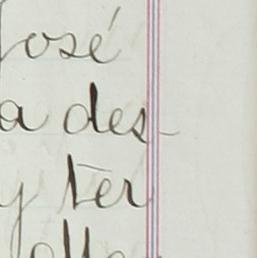 José
a des-
y ter